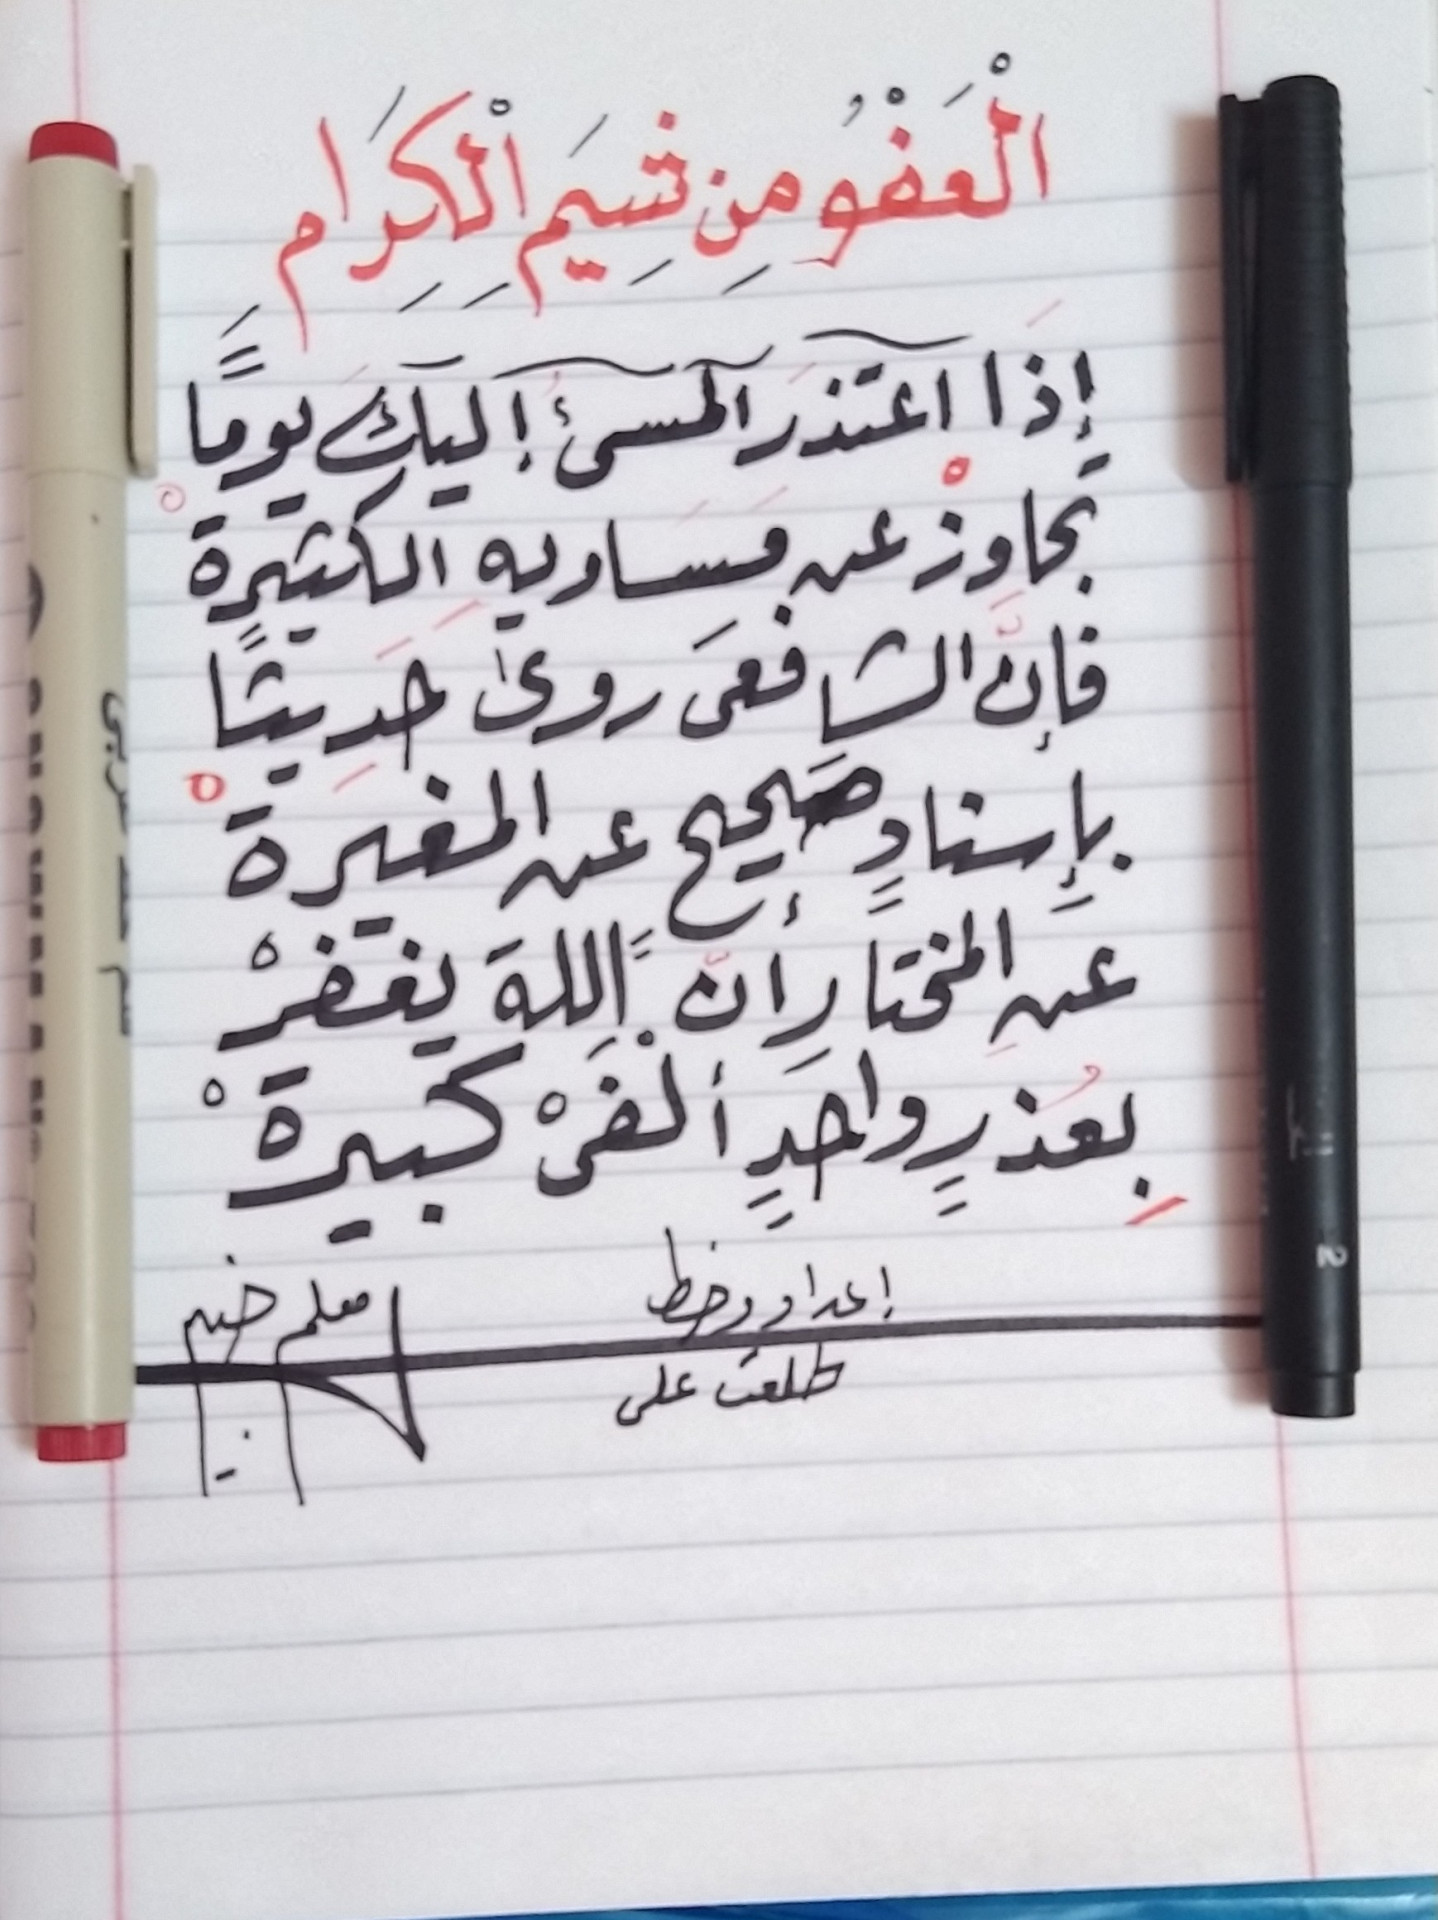 الْعَفْوُ مِن شِيَمِ الْكِرَامِ
إِذَا اعتذرَ المسئُ إليكَ يومًا
تجاوزْ عن مَسَاويهِ الكثيرة
فإنَّ الشافعَى روىٰ حَدِيثًا
بإِسنادٍ صَحيحٍ عن المغيرة
عنِ المختارِ أنَّ اللهَ يغفرْ
بِعُذرٍ واحدٍ ألفَىْ كبيرة
إعداد وخط
معلم خبير
طلعت على
2